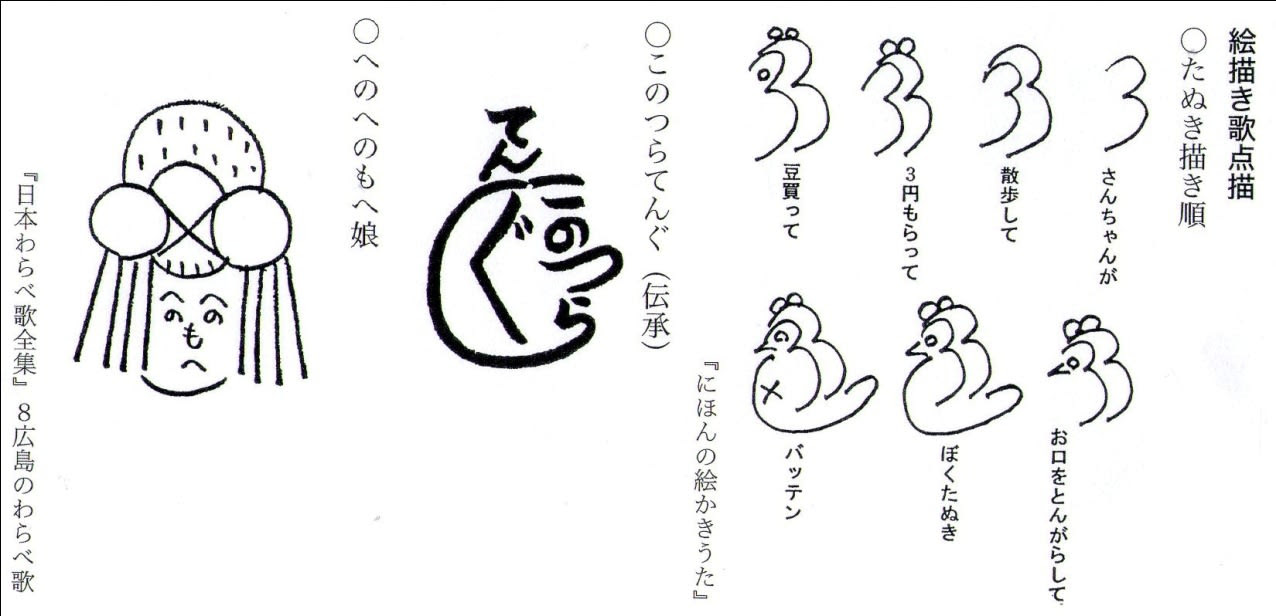 絵描き歌点描
〇たぬき描き順
さんちゃんが
散歩して
３円もらって
豆買って
お口をとんがらして
ぼくたぬき
バッテン
『にほんの絵かきうた』
〇このつらてんぐ（伝承）
てんぐ
このつら
〇へのへのもへ娘
へへ
のの
も
へ
『日本わらべ歌全集』８広島のわらべ歌